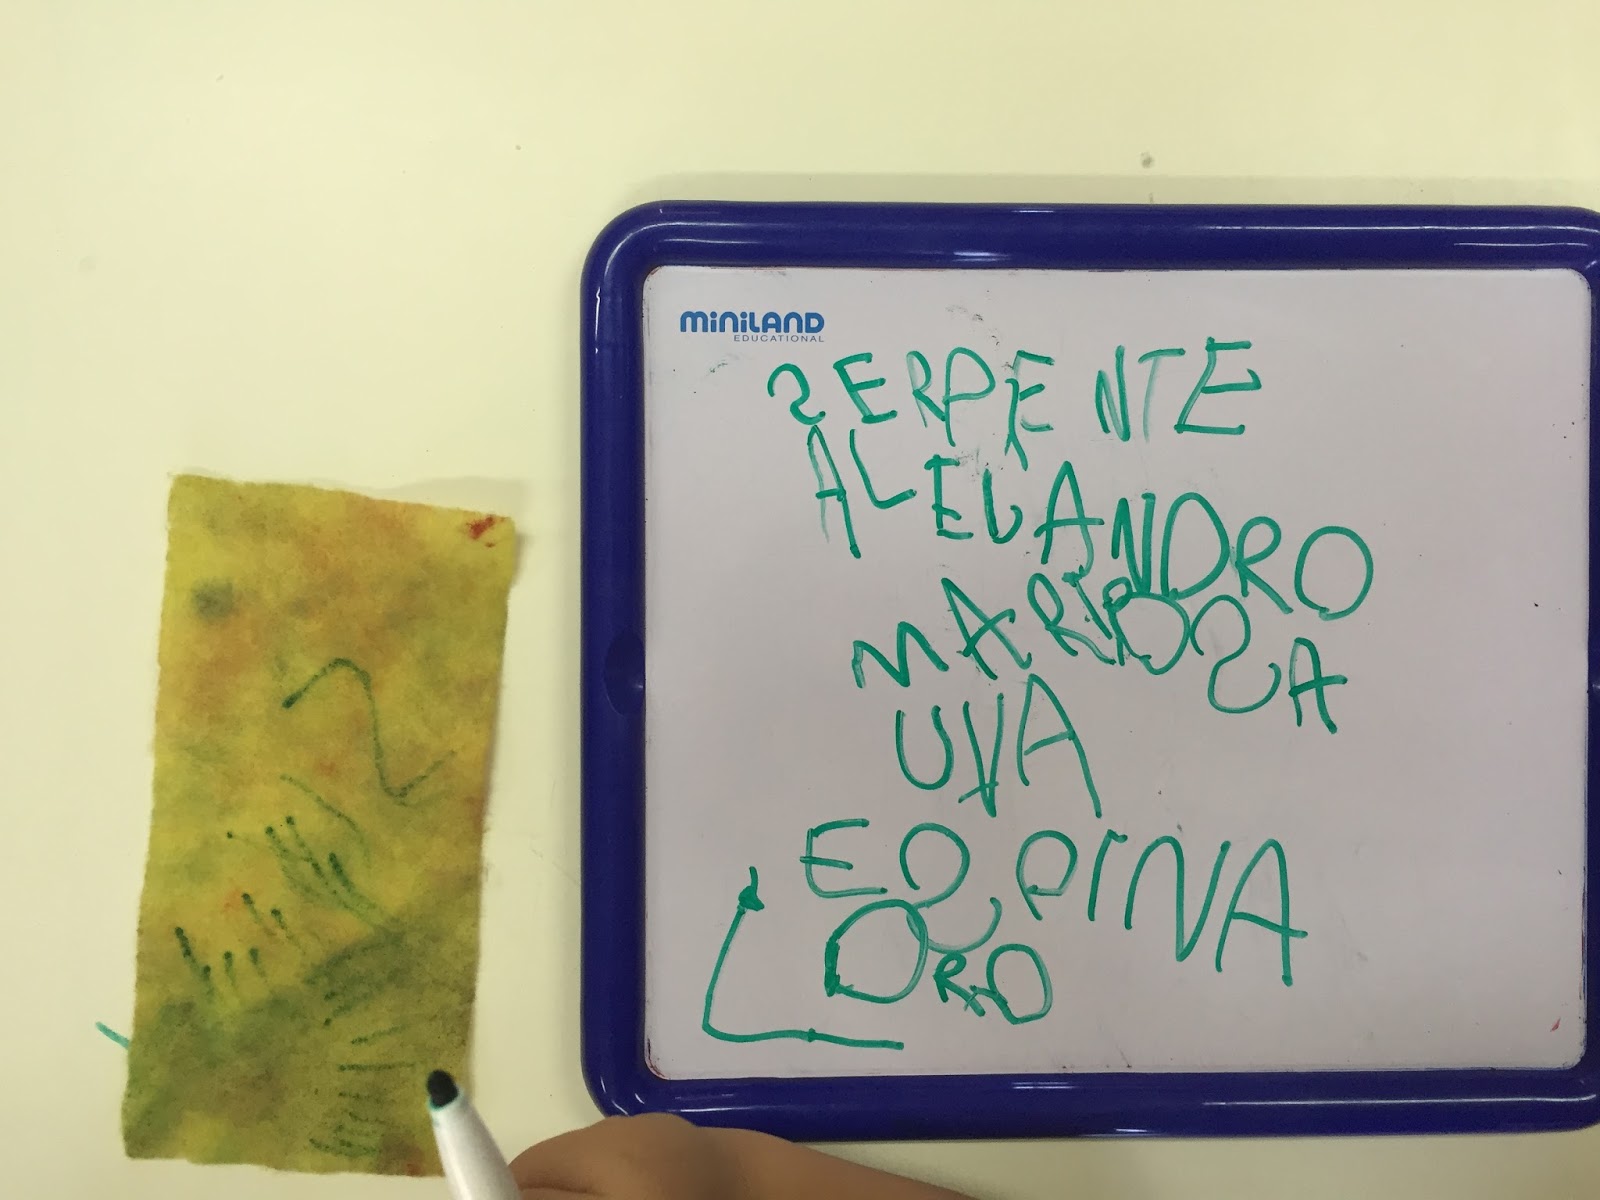 MINILAND
EDUCATIONAL
SERPENTE
ALEJANDRO
MARIPOSA
UVA
ESPINA
ORO